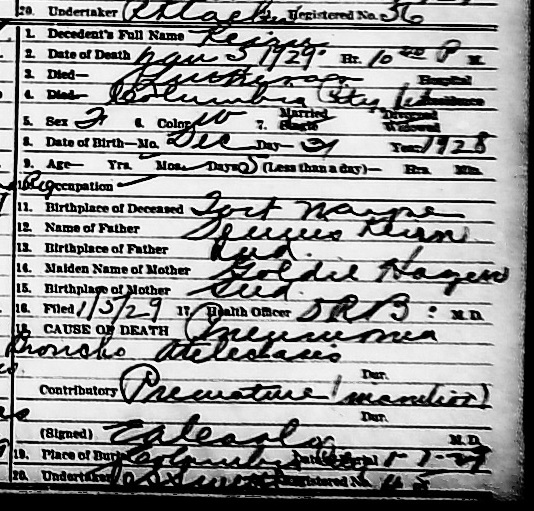 20. Undertaker Registered No. 36
1. Decedent's Full Name Keirn
2. Date of Death Jan 5 1929 Hr. 10 P M.
3. Died— Lutheran Hospital
4. Died— Columbia City Ind Residence
5. Sex F 6. Color W 7. Married Single Divorced Widowed
8. Date of Birth—Mo. Dec Day— 31 Year 1928
9. Age— Yrs. Mos. Days 5 (Less than a day)— Hrs. Min.
10. Occupation
11. Birthplace of Deceased Fort Wayne
12. Name of Father Keirn
13. Birthplace of Father Ind.
14. Maiden Name of Mother Goldie Hagen
15. Birthplace of Mother Ind.
16. Filed 1/5/29 17. Health Officer D R B : M. D.
18. CAUSE OF DEATH Pneumonia
Broncho Atelectasis
Dur.
Contributory Premature
Dur.
(Signed) M. D.
19. Place of Burial Columbia City Date of Burial 1-7-29
20. Undertaker Registered No.